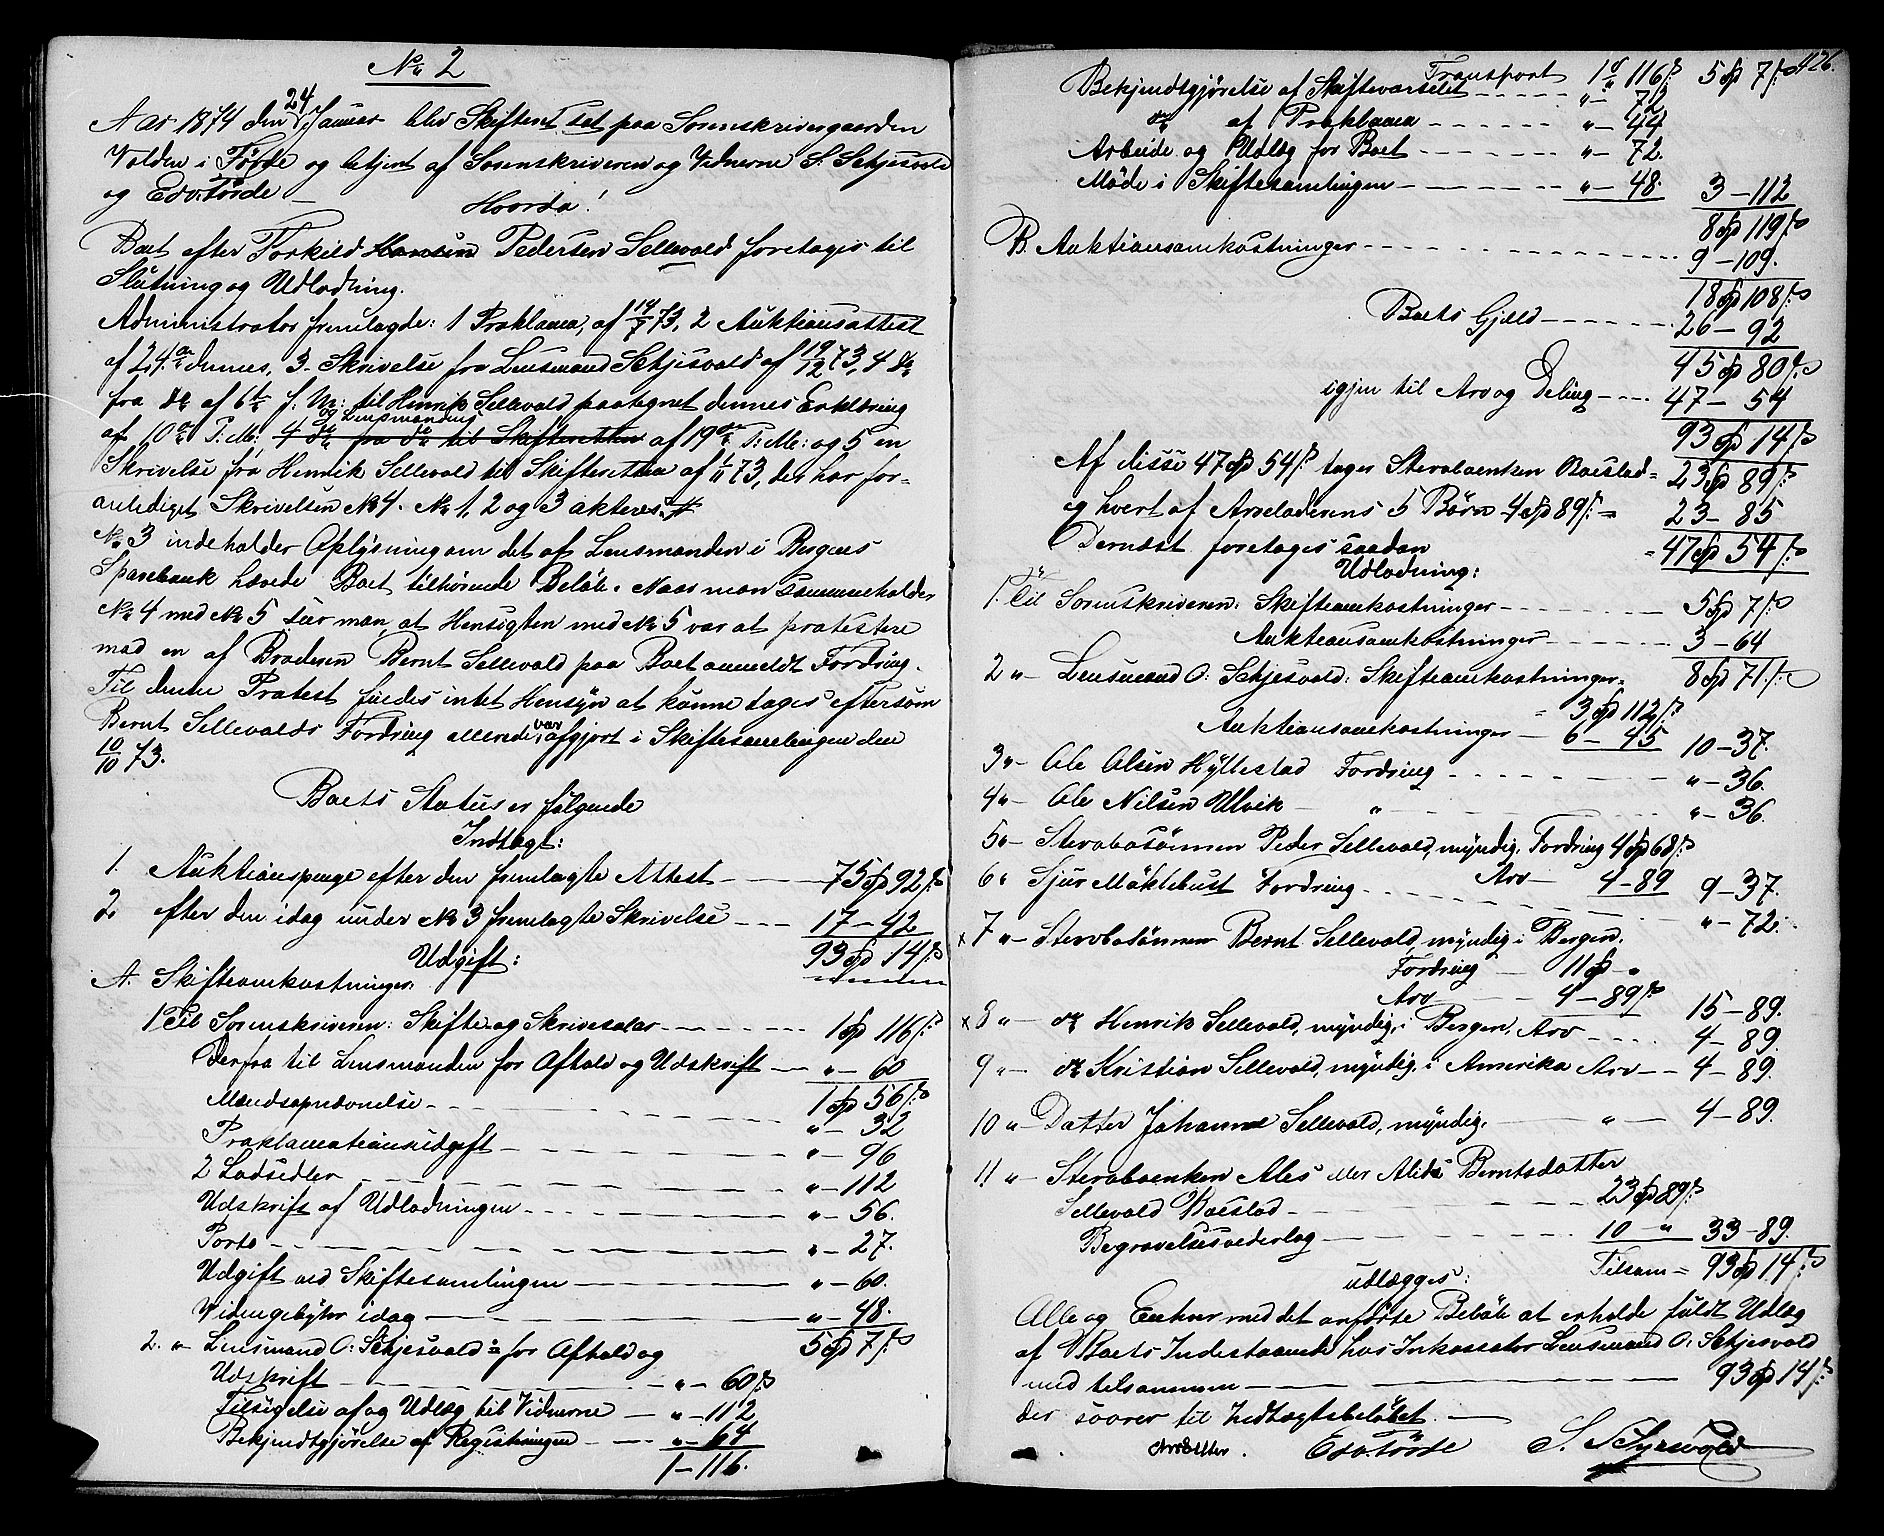 No 2
Aar 1874 den 24 Januar blev Skifteret sat paa Sorenskrivergaarden
Volden i Förde og betjent af Sorenskriveren og Vidnerne S. Schjesvold
og Edv. Förde
Hvorda!
Boet efter Torkild Hansen Pedersen Sellevold foretages til
Slutning og Udlodning.
Administrator fremlagde: 1 Proklama, af 14/7 73, 2 Auktionsattest
af 24de dennes, 3. Skrivelse fra Lensmand Schjesvold af 19/12 73, 4 do
fra do af 6te f. M: til Henrik Sellevold paategnet dennes Erklæring
af 10de s: M: 4 do fra do til Skifteretten og Lensmandens af 19de s: M: og 5 en
Skrivelse fra Henrik Sellevold til Skifteretten af 1/11 73, der har for-
anlediget Skrivelsen No 4. No 1, 2 og 3 akteres.
No 3 indeholder Oplysning om det af Lensmanden i Bergens
Sparebank hævede Boet tilhörende Belöb. Naar man sammenholder
No 4 med No 5 seer man, at Hensigten med No 5 var at protestere
mod en af Broderen Bernt Sellevold paa Boet anmeldt Fordring.
Til denne Protest findes intet Hensyn at kunne tages eftersom
Bernt Sellevolds Fordring allerede var afgjort i Skiftesamlingen den
10/10 73.
Boets Status er fölgende
Indtægt:
1. Auktionspenge efter den fremlagte Attest 75 Spd 92 s
2. efter den idag under No 3 fremlagte Skrivelse 17 - 42
93 Spd 14 s
Udgift:
A. Skifteomkostninger
1 Til Sorenskriveren: Skifte og Skrivesalær 1 Spd 116 s
Derfra til Lensmanden for Afhold og Udskrift " - 60
1 Spd 56 s
Mandsopnævnelse " - 32
Proklamationsudgift " - 96
2 Lodsedler " - 112
Udskrift af Udlodningen " - 56.
Porto " - 27.
Udgift ved Skiftesamlingen " - 60.
Vidnegebyhr idag " - 48.
5 Spd 7 s
2. " Lensmand O: Schjesvold: for Afhold og
Udskrift " - 60 s
Tilsigelse af og Udlæg til Vidnerne " - 112
Bekjendtgjörelse af Registringen " - 64
1 - 116.
426.
Transport 1 " 116 s 5 Spd 7 s
Bekjendtgjörelse af Skiftevarselet " - 72
do af Proklama " - 44
Arbeide og Udlæg for Boet " - 72.
Möde i Skiftesamlingen " - 48. 3 - 112
8 Spd 119 s
B. Auktionsomkostninger 9 - 109.
18 Spd 108 s
Boets Gjæld 26 - 92
45 Spd 80 s
igjen til Arv og Deling 47 - 54
93 Spd 14 s
Af disse 47 Spd 54 s tager Stervboenken Boeslod = 23 Spd 89 s
og hvert af Arveladerens 5 Börn 4 Spd 89 s = 23 - 85
= 47 Spd 54 s
Dernæst foretages saadan
Udlodning:
1. Til Sorenskriveren: Skifteomkostninger 5 Spd 7 s
Auktionsomkostninger 3 - 64
8 Spd 71 s
2 " - Lensmand O: Schjesvold: Skifteomkostninger =
3 Spd 112 s
Auktionsomkostninger - 6 - 45 10 - 37.
3 " - Ole Olsen Hyllestad Fordring " - 36.
4 " - Ole Nilsen Ulvik " " - 36.
5 " - Stervbosönnen Peder Sellevold, myndig, Fordring 4 Spd 68 s
Arv - 4 - 89 9 - 37.
6 " Sjur Möklebust Fordring " - 72.
x 7 " - Stervbosönnen Bernt Sellevold, myndig i Bergen.
Fordring 11 Spd "
Arv 4 - 89 s 15 - 89.
x 8 " - do Henrik Sellevold, myndig, i Bergen, Arv 4 - 89.
9 " - do Kristian Sellevold, myndig, i Amerika Arv 4 - 89.
10 " - Datter Johanne Sellevold, myndig. " 4 - 89.
11 " - Stervboenken Ales eller Alida Berntsdatter
Sellevold Boeslod 23 Spd 89 s
Begravelsesvederlag 10 - " 33 - 89.
Tilsam = 93 Spd 14 s
udlægges:
Alle og Enhver med det anförte Belöb at erholde fuldt Udlæg
af Boets Indestaaende hos Inkassator Lensmand O: Schjesvold
med tilsammen 93 Spd 14 s
der svarer til Indtægtsbelöbet.
Edv. Förde S. Schjesvold